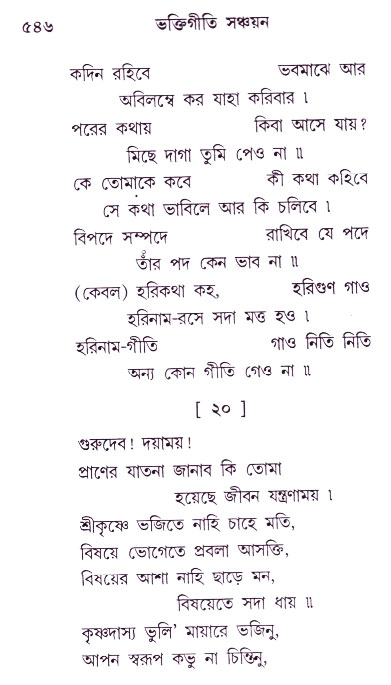 ৫৪৬ ভক্তিগীতি সঞ্চয়ন
কদিন রহিবে ভবমাঝে আর
অবিলম্বে কর যাহা করিবার ৷
পরের কথায় কিবা আসে যায়?
মিছে দাগা তুমি পেও না ৷৷
কে তোমাকে কবে কী কথা কহিবে
সে কথা ভাবিলে আর কি চলিবে ৷
বিপদে সম্পদে রাখিবে যে পদে
তাঁর পদ কেন ভাব না ৷৷
(কেবল) হরিকথা কহ, হরিগুণ গাও
হরিনাম-রসে সদা মত্ত হও ৷
হরিনাম-গীতি গাও নিতি নিতি
অন্য কোন গীতি গেও না ৷৷
[ ২০ ]
গুরুদেব! দয়াময়!
প্রাণের যাতনা জানাব কি তোমা
হয়েছে জীবন যন্ত্রণাময় ৷
শ্রীকৃষ্ণে ভজিতে নাহি চাহে মতি,
বিষয়ে ভোগেতে প্রবলা আসক্তি,
বিষয়ের আশা নাহি ছাড়ে মন,
বিষয়েতে সদা ধায় ৷৷
কৃষ্ণদাস্য ভুলি’ মায়ারে ভজিনু,
আপন স্বরূপ কভু না চিন্তিনু,